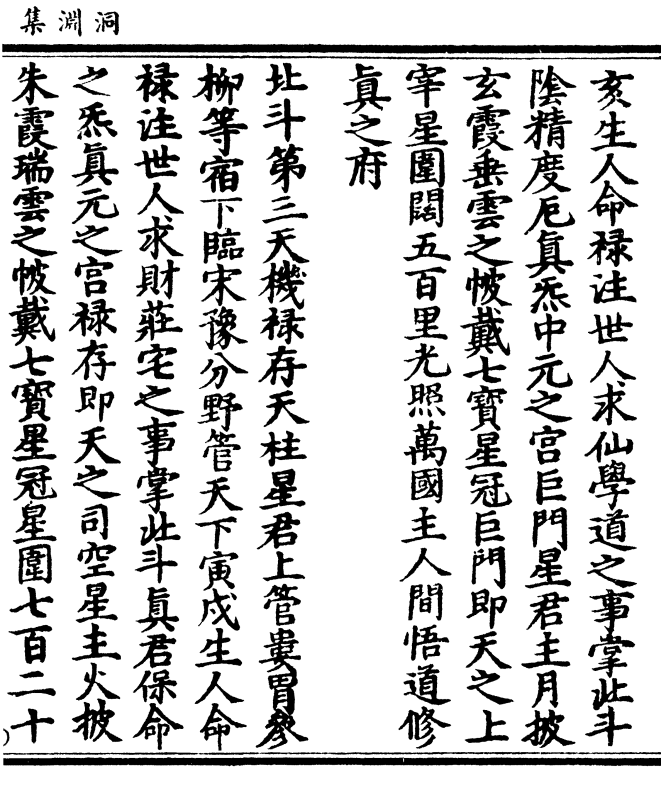 洞淵集
亥生人命禄注世人求仙學道之事掌北斗
陰精度厄真炁中元之宮巨門星君主月披
玄霞垂雲之帔戴七寳星冠巨門即天之上
宰星圍闊五百里光照萬國主人間悟道修
真之府
北斗第三天機禄存天柱星君上管婁胃參
柳等宿下臨宋豫分野管天下寅戌生人命
禄注世人求財莊宅之事掌北斗真君保命
之炁真元之宮禄存即天之司空星主火披
朱霞瑞雲之帔戴七寳星冠星圍七百二十